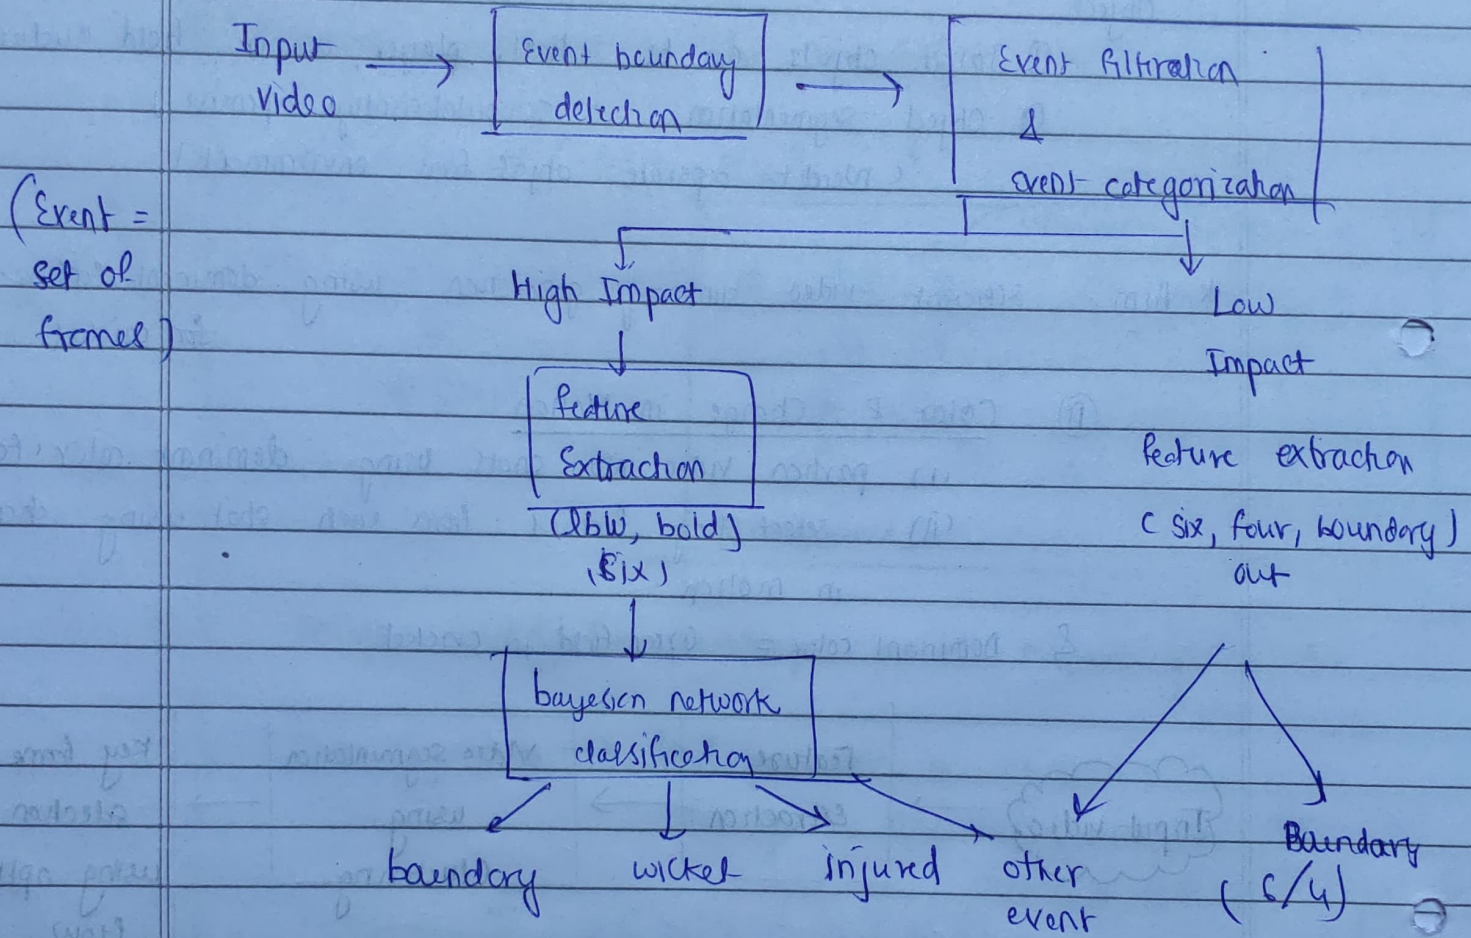 Input
video
Event boundary
detection
Event filtration
&
event categorization
(Event =
set of
frames)
High Impact
Low
Impact
feature
Extraction
(lbw, bold)
, six)
feature extraction
(six, four, boundary)
out
bayesian network
classification
boundary
wicket
injured
other
event
Boundary
(6/4)